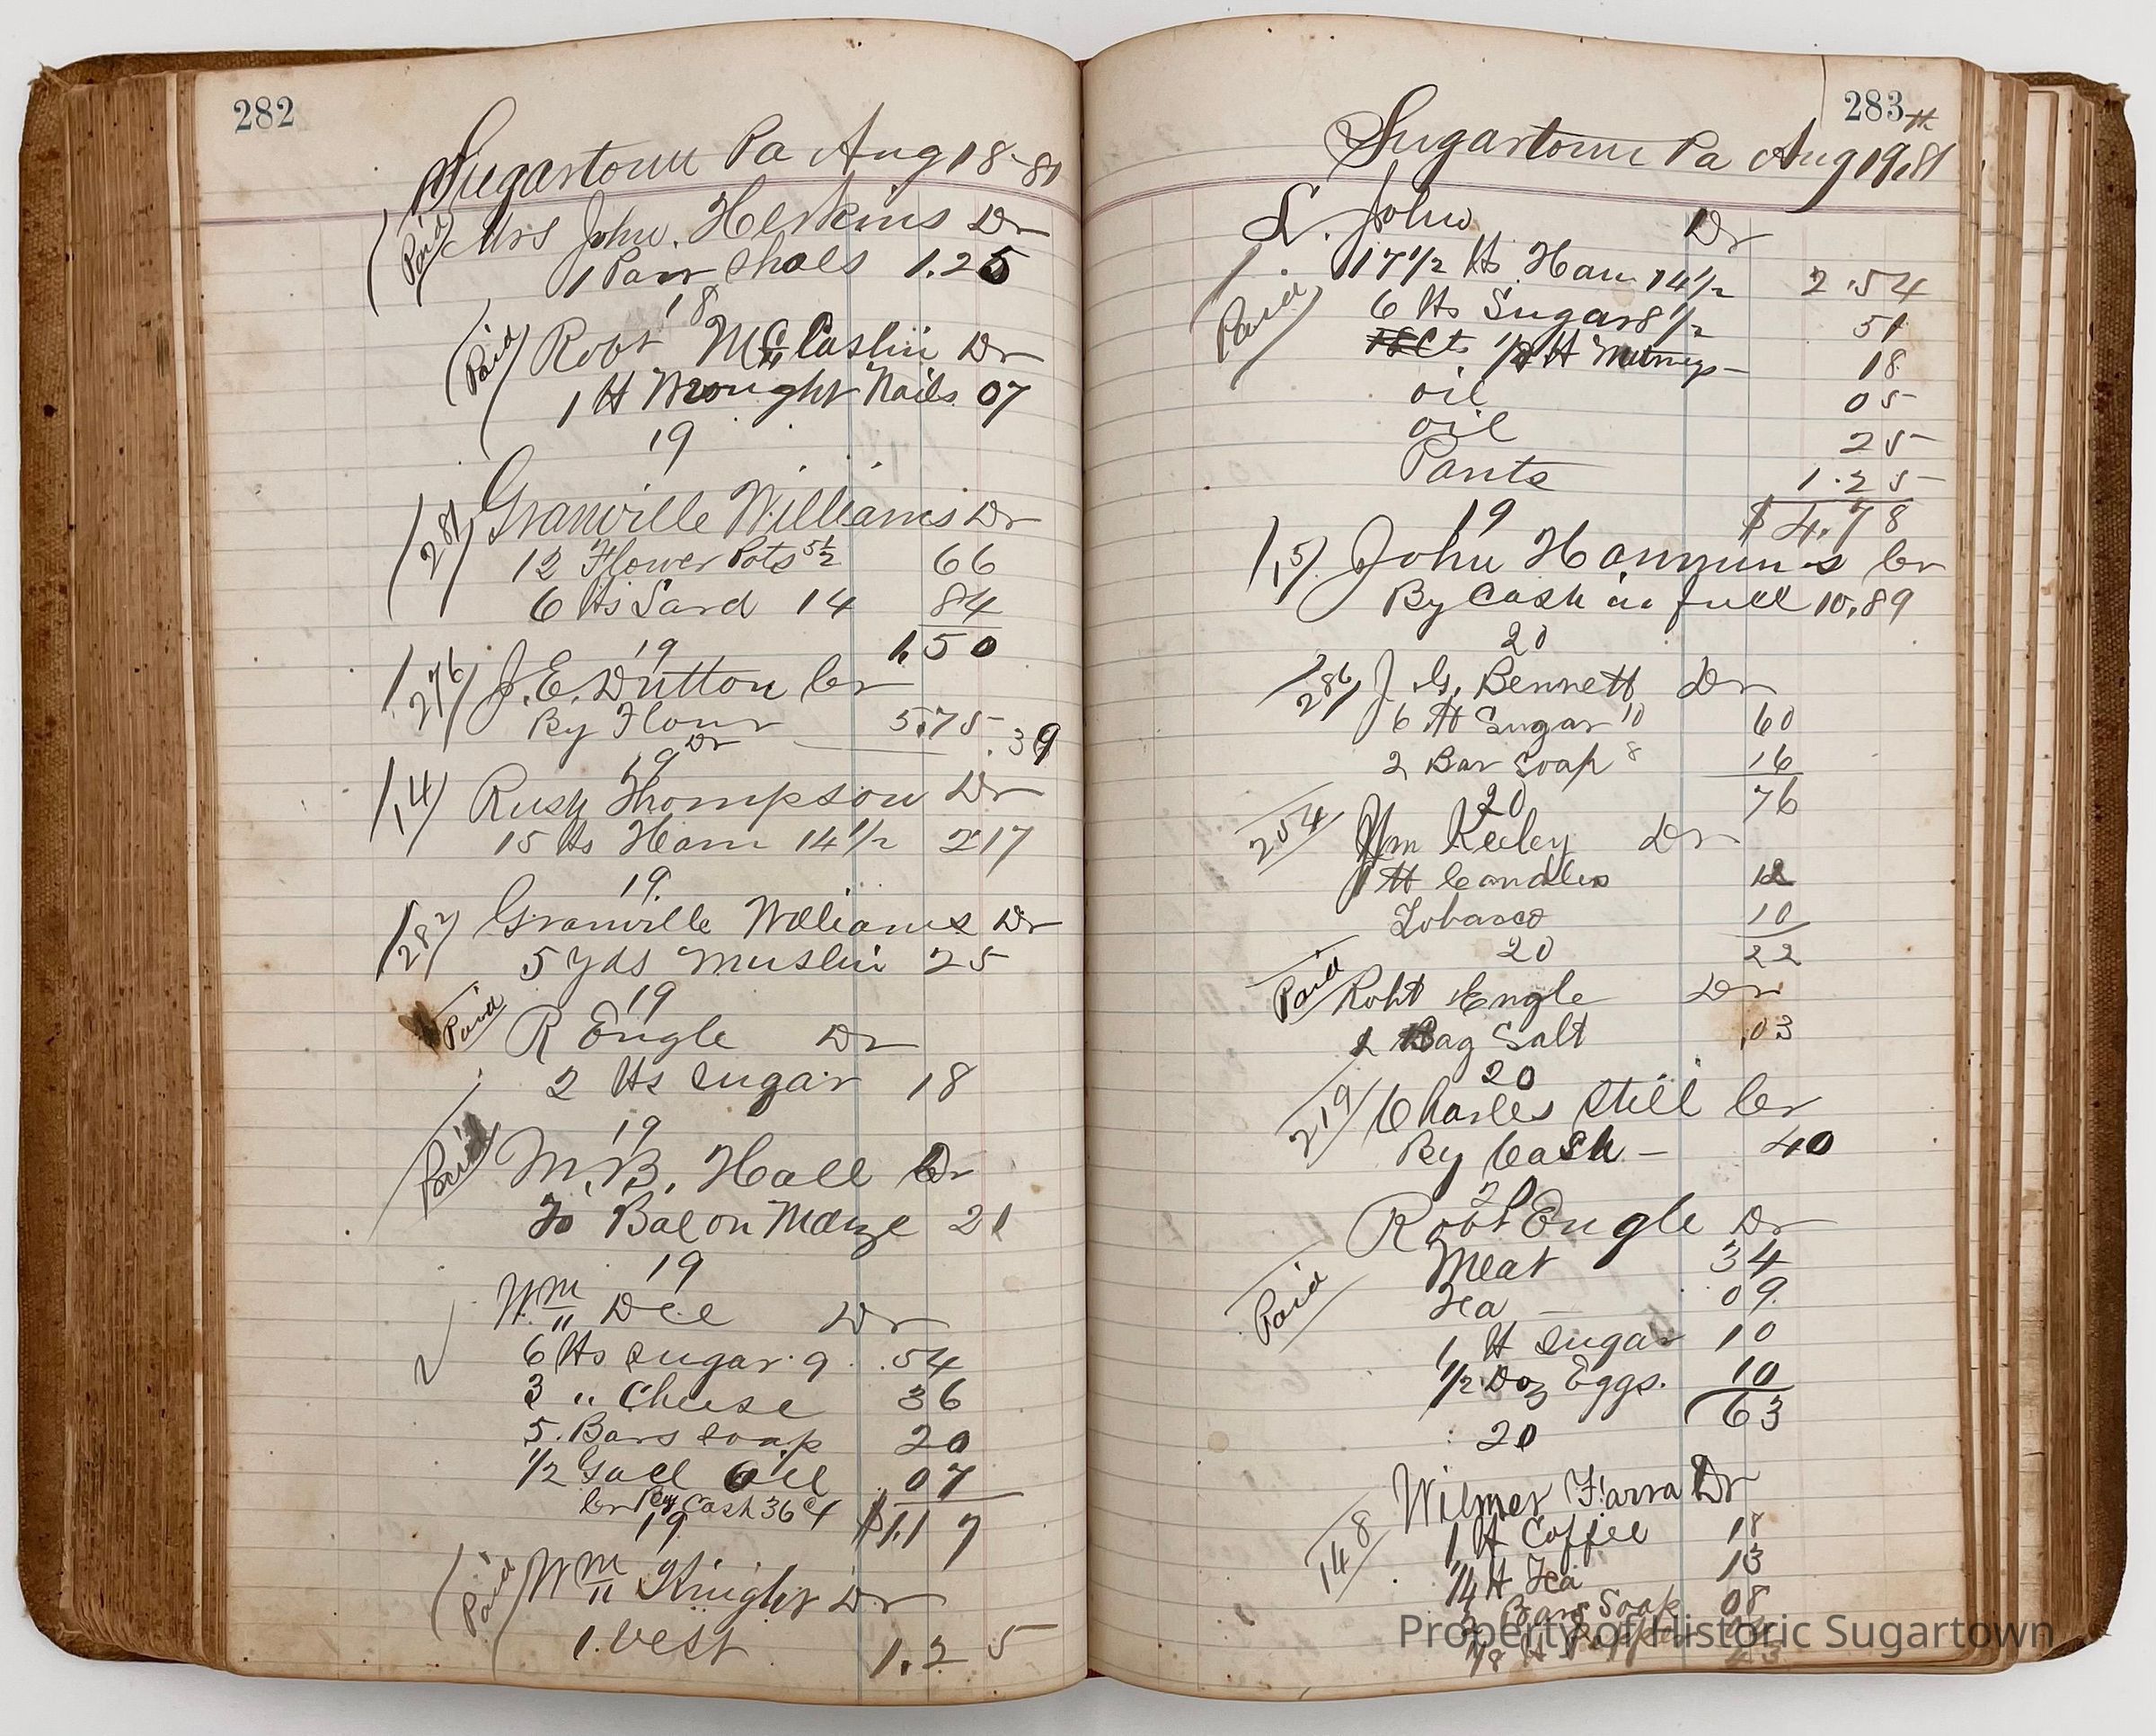 282
Sugartown Pa Aug 18-81
Paid Mrs John. Heskins Dr
1 Pair Shoes 1.25
18
Paid Robt McCaslin Dr
1 ℔ Wrought Nails 07
19
281 Granville Williams Dr
12 Flower Pots 5½ 66
6 ℔s Lard 14 84
1.50
19
276 J. E. Dutton Cr
By Flour 5.75
Dr .39
19
14 Thompson Dr
15 ℔s Ham 14½ 2 17
19
282 Granville Williams Dr
5 yds Muslin 25
19
Paid R Engle Dr
2 ℔s Sugar 18
19
Paid M. B. Hall Dr
To Bal on 21
19
Wm Dee Dr
6 ℔s Sugar 9 .54
3 " Cheese 36
5 Bars Soap 20
1/2 Gall Oil 07
Cr By Cash 36 $1.17
19
Paid Wm Knight Dr
1 Vest 1.25
283
Sugartown Pa Aug 19th, 81
S. John Dr
17 1/2 ℔s Ham 14 1/2 2.54
Paid 6 ℔s Sugar 8 1/2 51
℔ Nutmegs - 18
oil 05
oil 25
Pants 1.25
19 $4.78
15 John Hammuns Cr
By Cash in full 10.89
20
286 J. G. Bennett Dr
6 ℔ Sugar 10 60
2 Bar Soap 8 16
20 76
254 Wm Keeley Dr
1 ℔ Candles 12
Tobacco 10
20 22
Paid Robt Engle Dr
1 Bag Salt .03
20
219 Charles Still Cr
By Cash - 40
20
Robt Engle Dr
Meat 34
Paid Tea - 09
1 ℔ Sugar 10
1/2 Doz Eggs. 10
20 63
Wilmer Farra Dr
148 1 ℔ Coffee 18
1/4 ℔ Tea 13
2 Bars Soap 08
1/8 ℔ Pepper
Property of Historic Sugartown